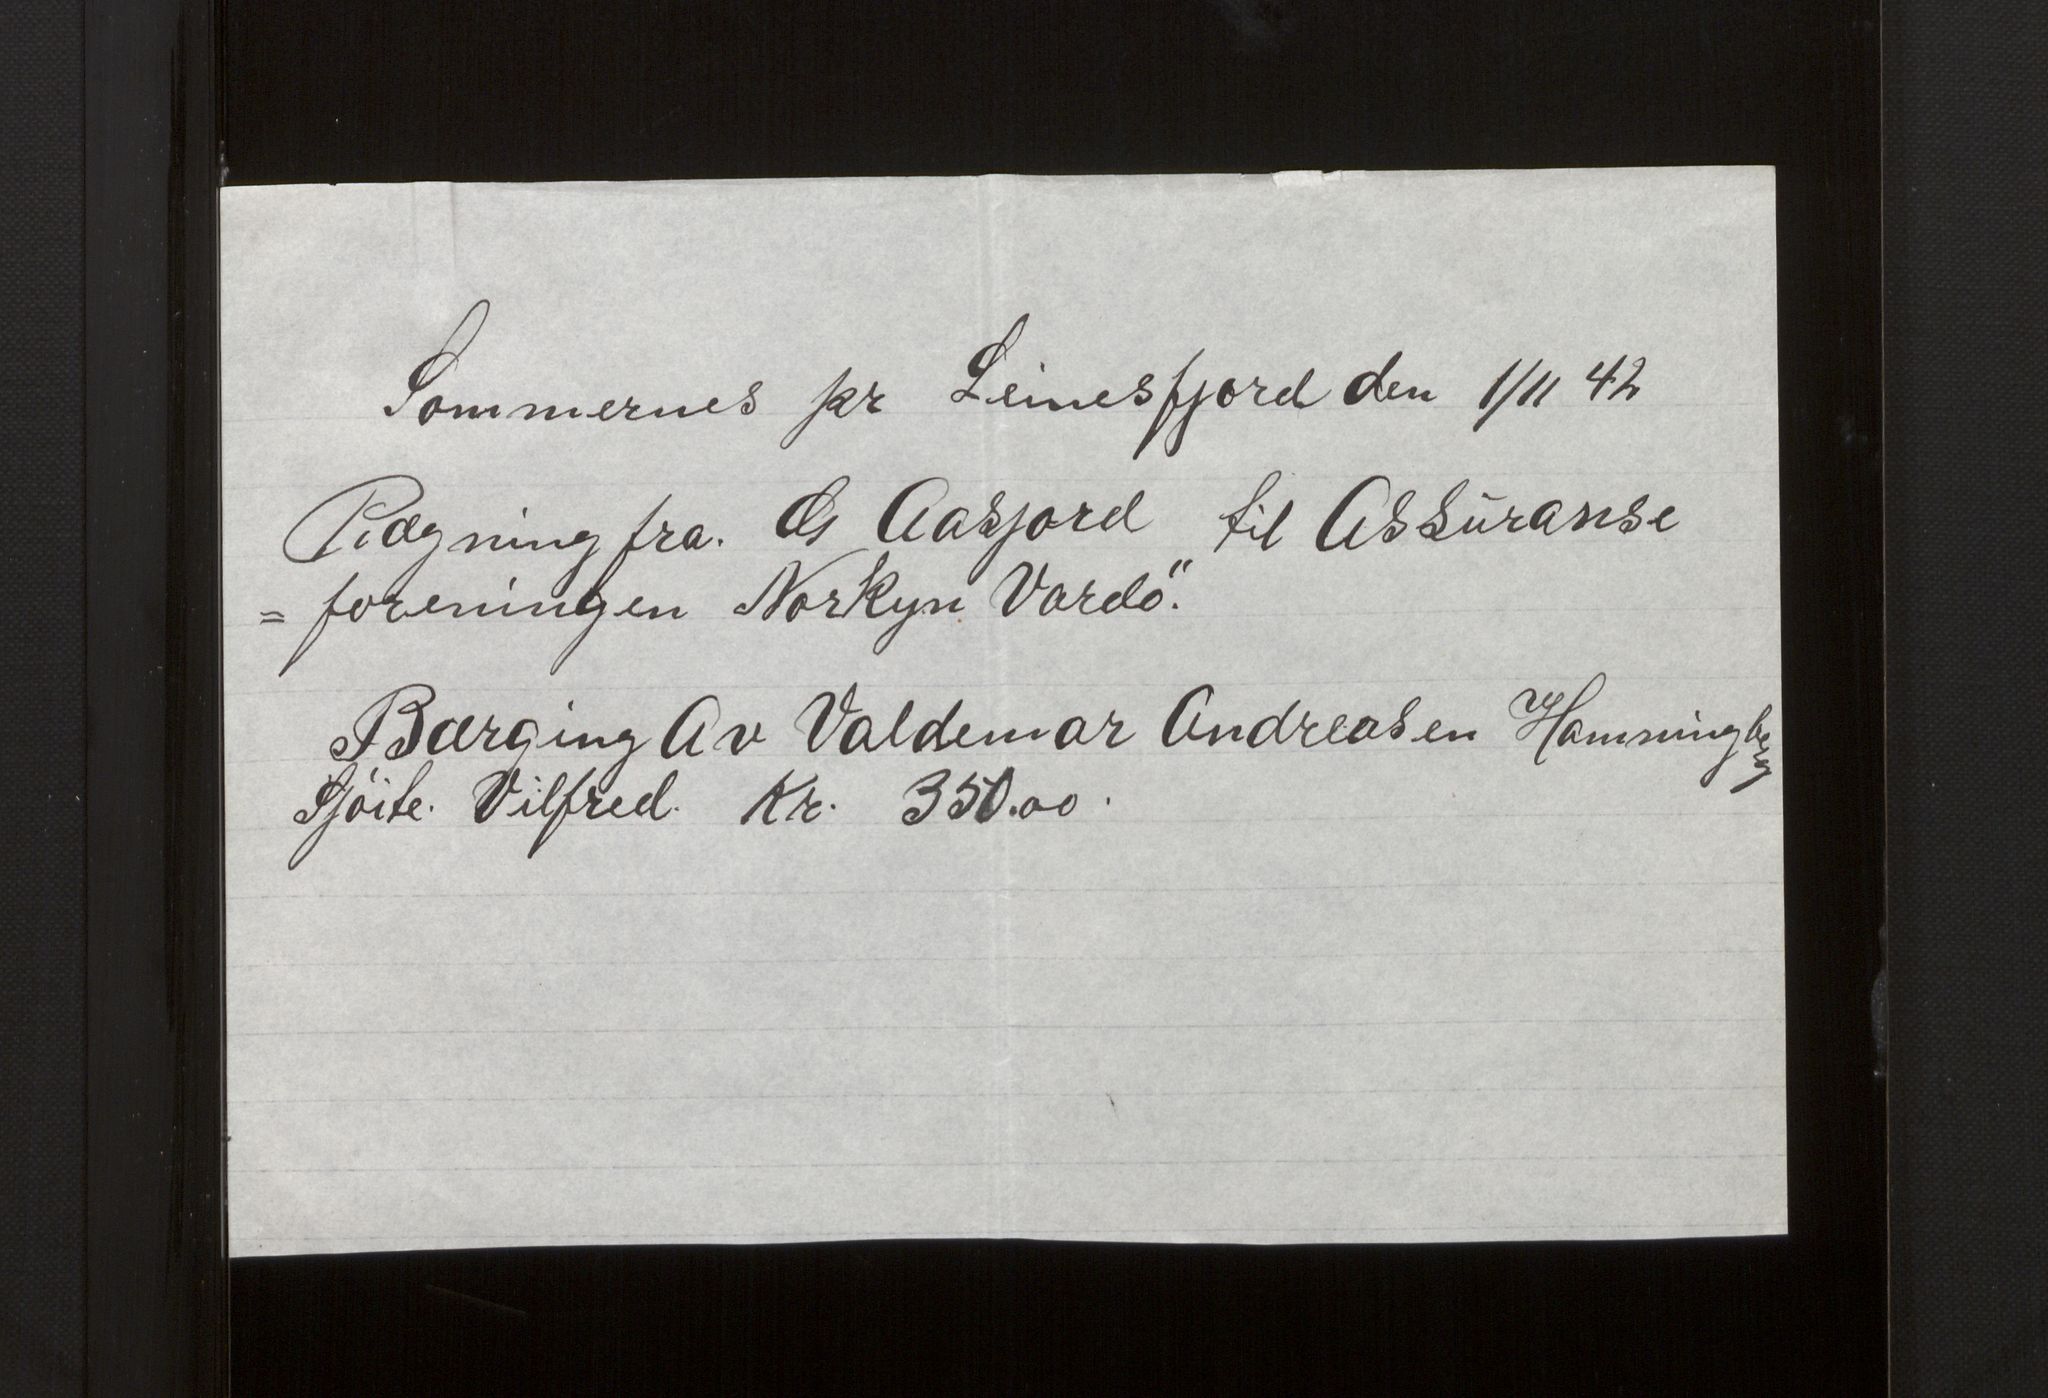 Sommernes pr Leinesfjord den 1/11 42
Rægning fra. Ds Aasjord til Assuranse
= foreningen Norkyn Vardö".
Bærging Av Valdemar Andreasen Hamningberg
Sjöite. Vilfred. Kr. 350.00.